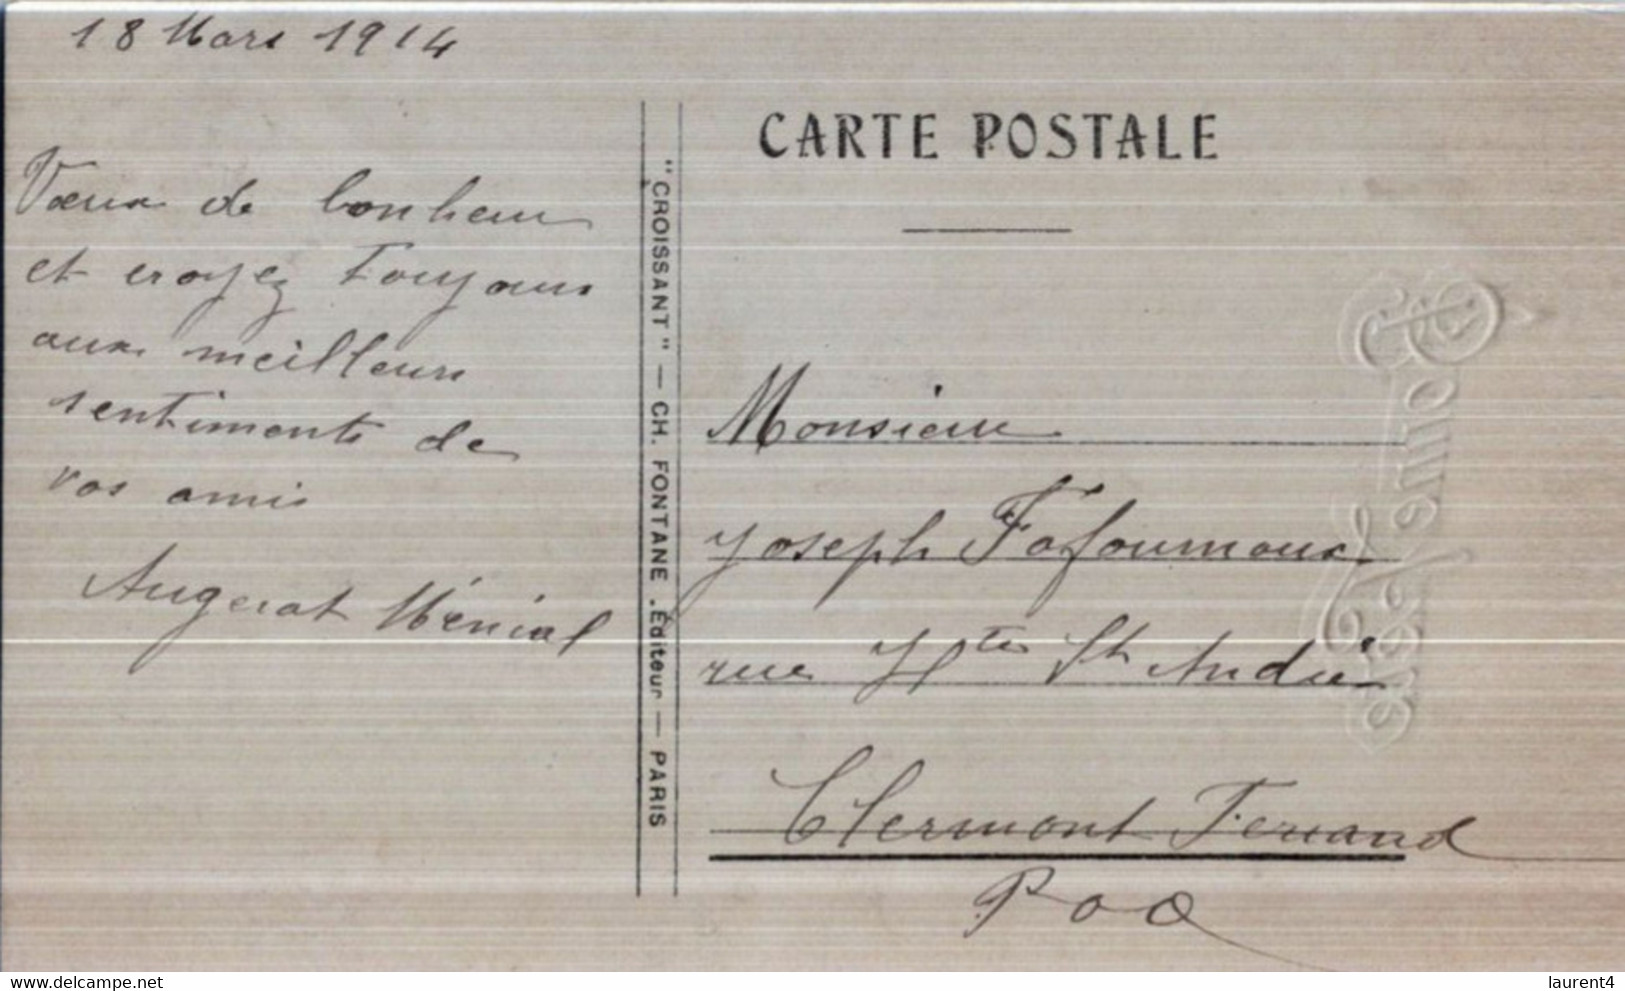 18 Mars 1914
CARTE POSTALE
Vœux de bonheur
et croyez toujours
aux meilleurs
sentiments de
vos amis
Augerat
"CROISSANT" — CH. FONTANE . Éditeur — PARIS
Monsieur
Joseph
rue Hte St André
Clermont Ferrand
laurent4